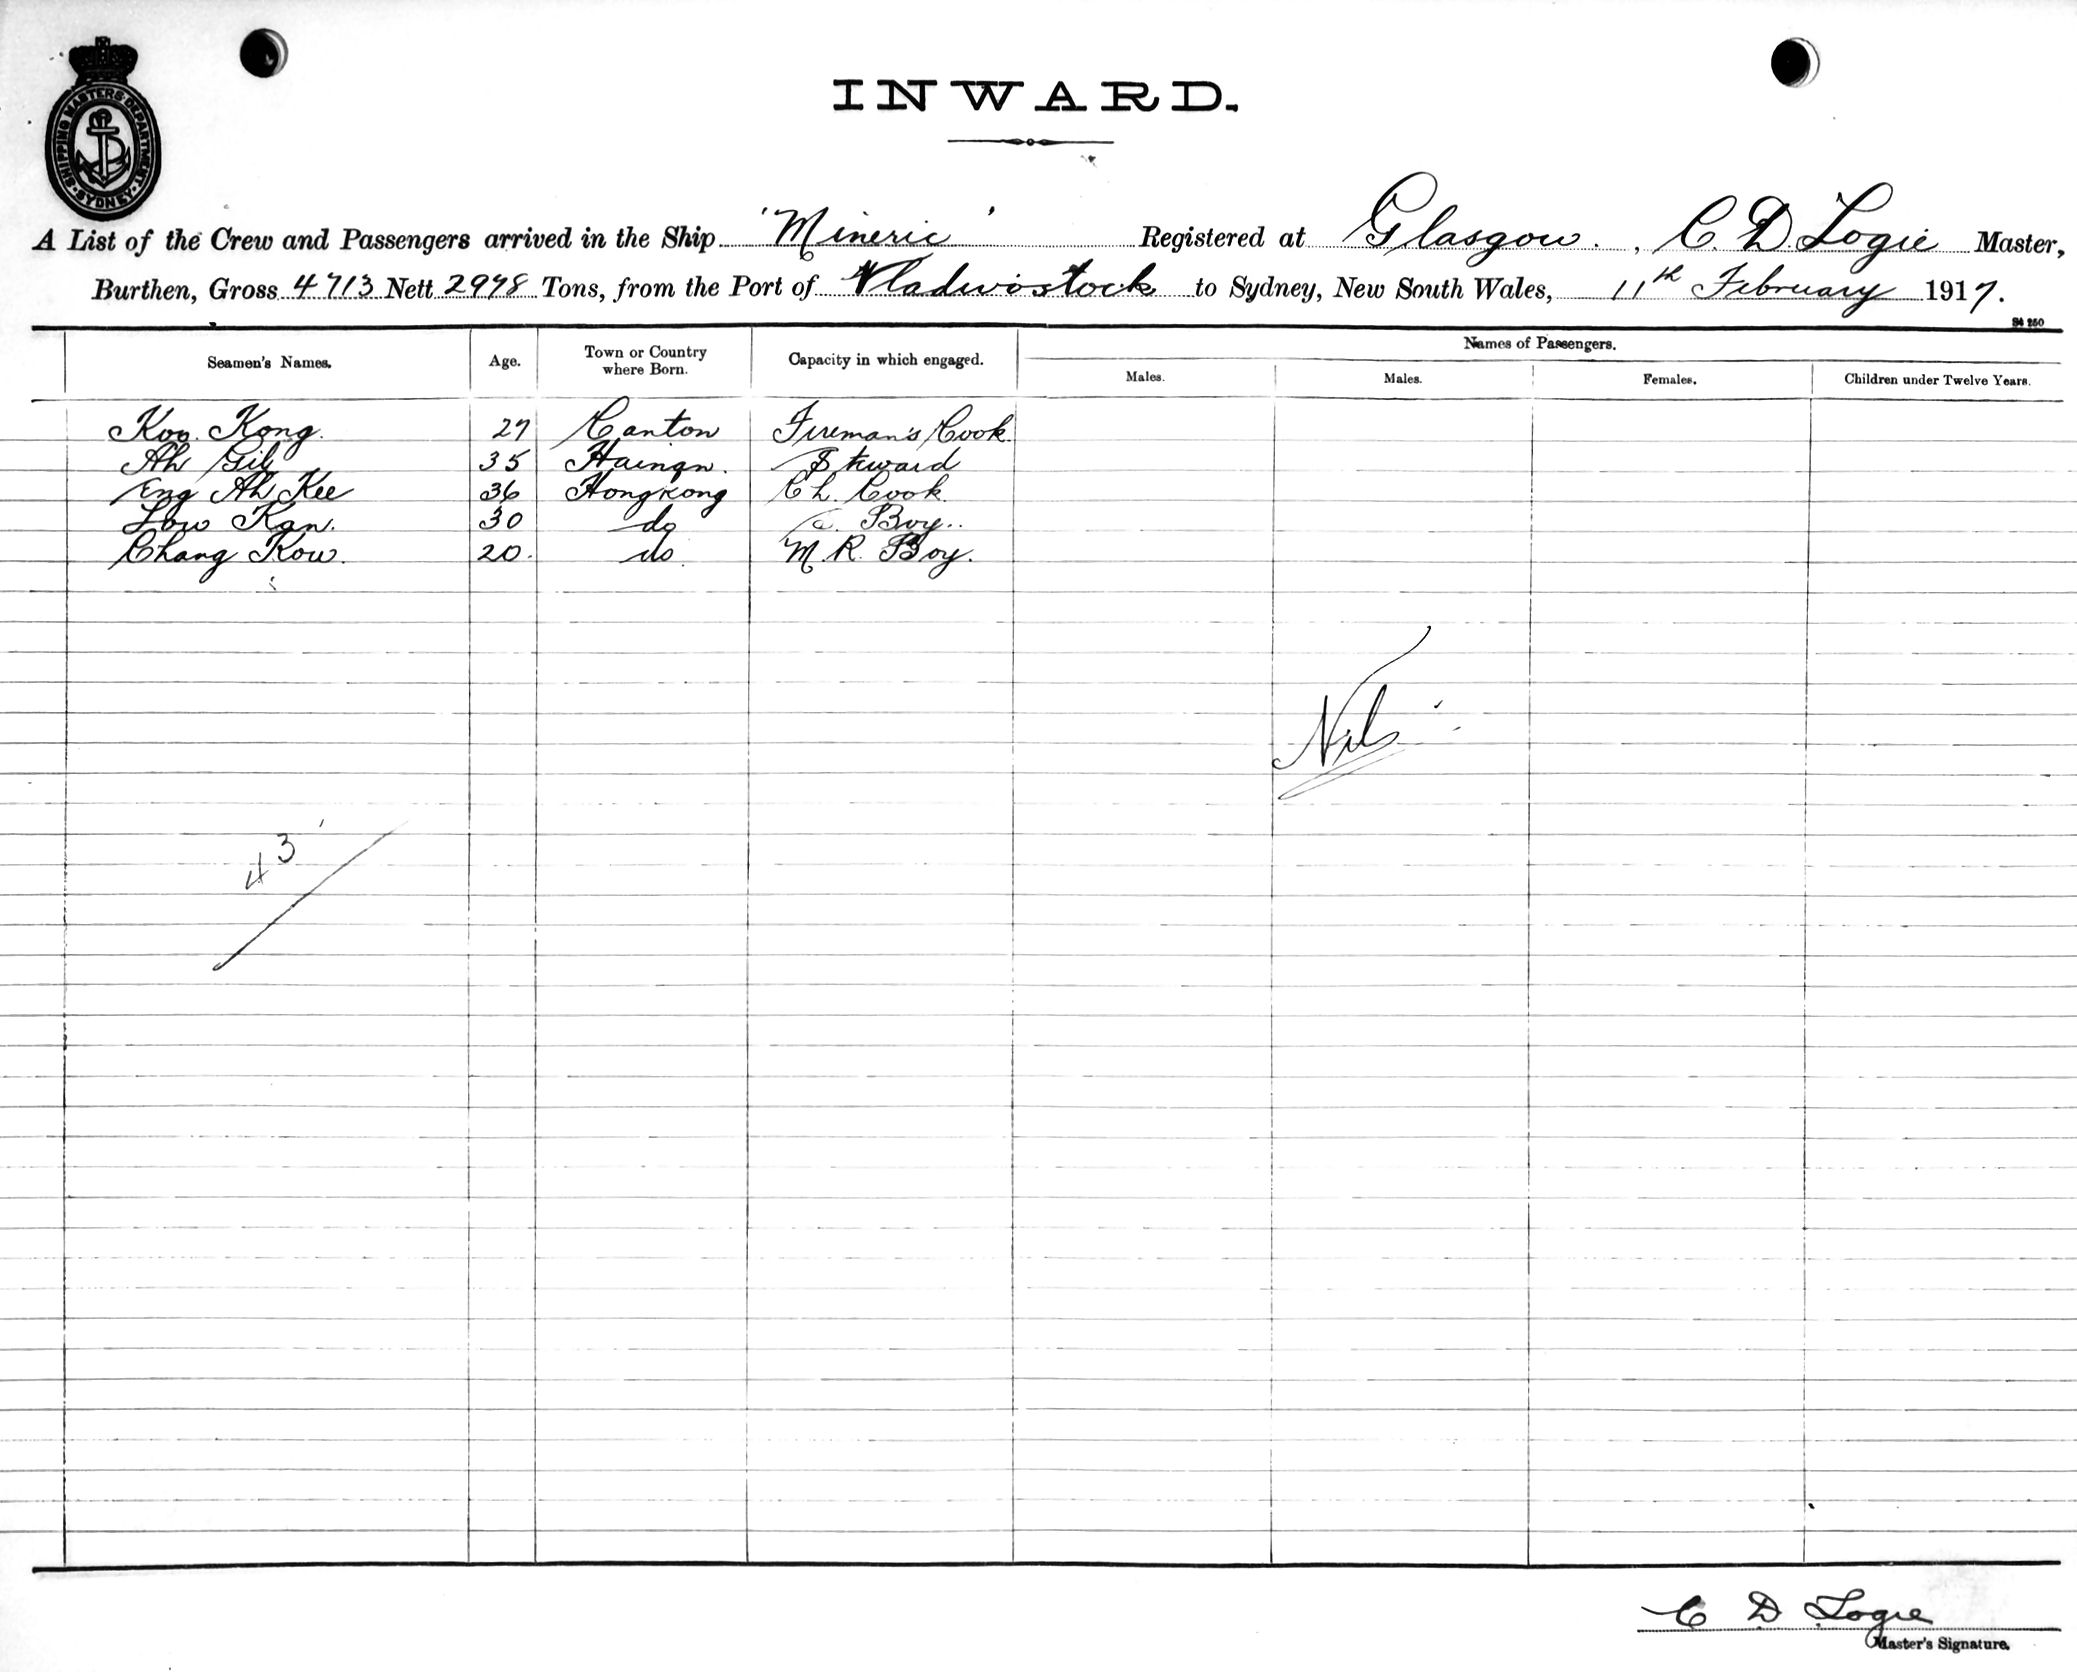 SHIPPING MASTERS DEPARTMENT
SYDNEY
INWARD.
A List of the Crew and Passengers arrived in the Ship 'Mineric' Registered at Glasgow. , C. D. Logie Master,
Burthen, Gross 4713 Nett 2948 Tons, from the Port of Vladivostock to Sydney, New South Wales, 11th February 1917.
S4 250
Seamen's Names. Age. Town or Country where Born. Capacity in which engaged. Names of Passengers.
Males. Males. Females. Children under Twelve Years.
Koo Kong. 27 Canton Fireman's Cook.
Ah 35 Hainan. Steward
Eng Ah Kee 36 Hongkong Ch. Cook.
Low Kan. 30 do Boy..
Chang Kow. 20. do. M. R. Boy.
Nil
43
C D Logie
Master's Signature.